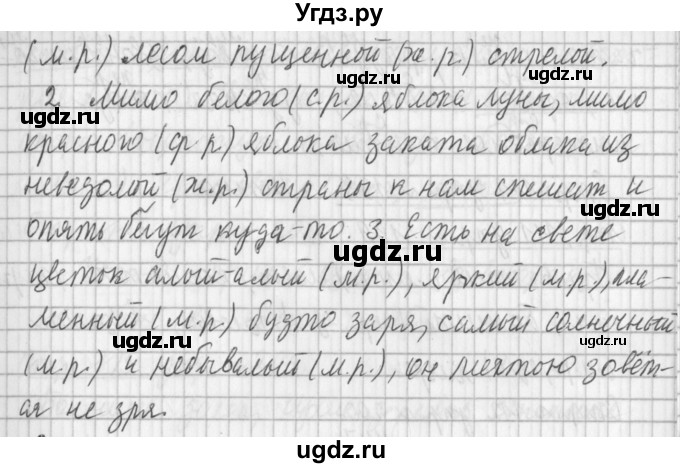 Угдз.ру
(м.р.) лесом пущенной (ж.р.) стрелой.
2. Мимо белого (с.р.) яблока Луны, мимо
красного (ср р.) яблока заката облака из
неведомой (ж.р.) страны к нам спешат и
опять бегут куда-то. 3. Есть на свете
цветок алый-алый (м.р.), яркий (м.р.), пла-
менный (м.р.) будто заря, самый солнечный
(м.р.) и небывалый (м.р.), он мечтою зовёт-
ся не зря.
ugdz.ru
ugdz.ru
ugdz.ru
ugdz.ru
ugdz.ru
ugdz.ru
ugdz.ru
ugdz.ru
ugdz.ru
ugdz.ru
ugdz.ru